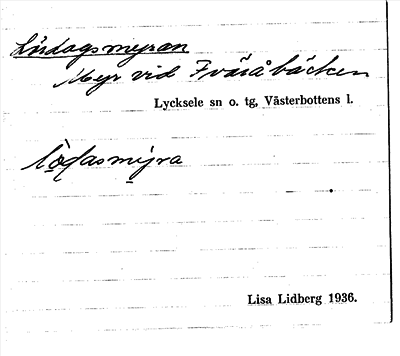 Lördagsmyran
Myr vid Tväråbäcken
Lycksele sn o. tg, Västerbottens l.
Lisa Lidberg 1936.